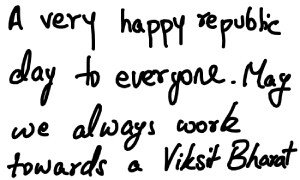 A very happy republic
day to everyone. May
we always work
towards a Viksit Bharat